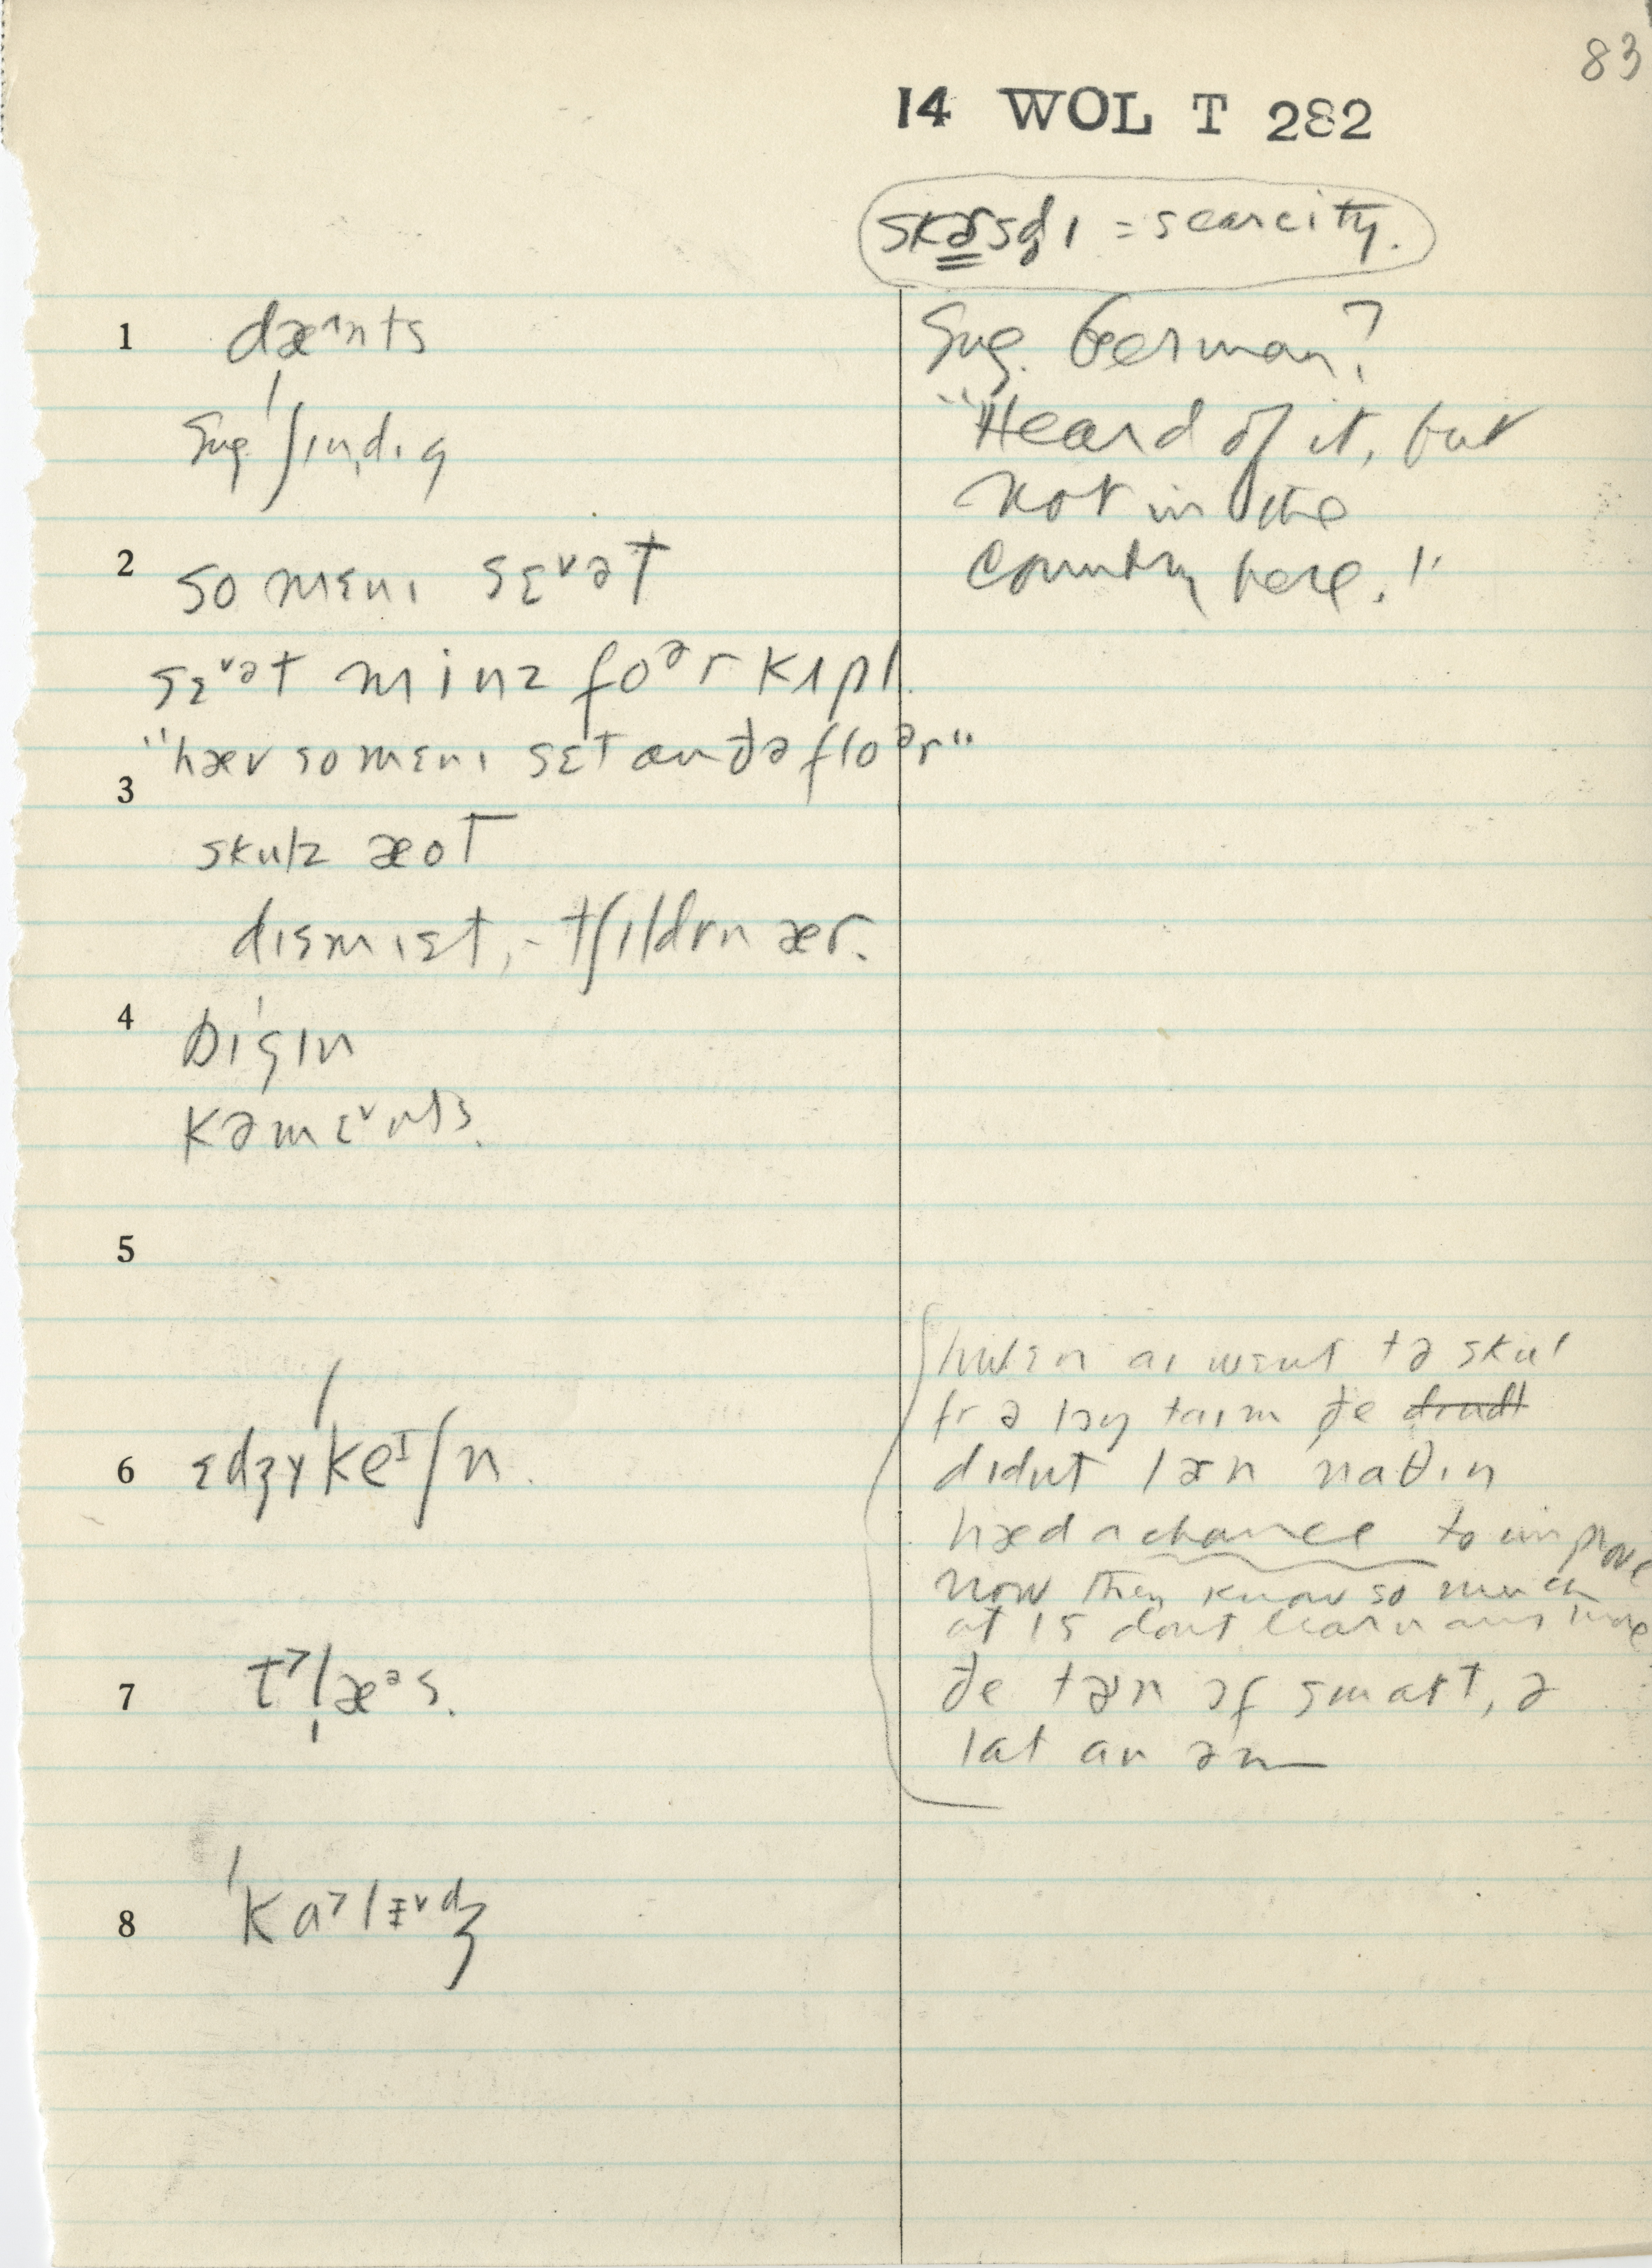 83
14 WOL T 282
= scarcity.
1 dæ^nts
Sug. German?
Sug. ʃɪndɪg
"Heard of it, but
not in the
2 so mɛnɪ sɛᵛət
country here."
sɛᵛət minz foᵊr kʌpl.
"hæv so mɛnɪ sɛt an ðə floᵊr"
3
skulz æot
dɪsmɪst, - tʃɪldrn ær.
4 bɪgɪn
kəmɛᵛnts.
5
hwɛn aɪ wɛnt tə skul
fr ə lɔŋ taɪm ðe
6 ɛdʒɣˈkeᴵʃn.
didnt lɚn naθɪn
hæd a chance to improve
now they know so much
at 15 dont learn any more
7 t˃l̩æᵊs.
ðe tɚn ɔf smart, ə
lat av əm
8 ˈka˃lɪᵛdʒ